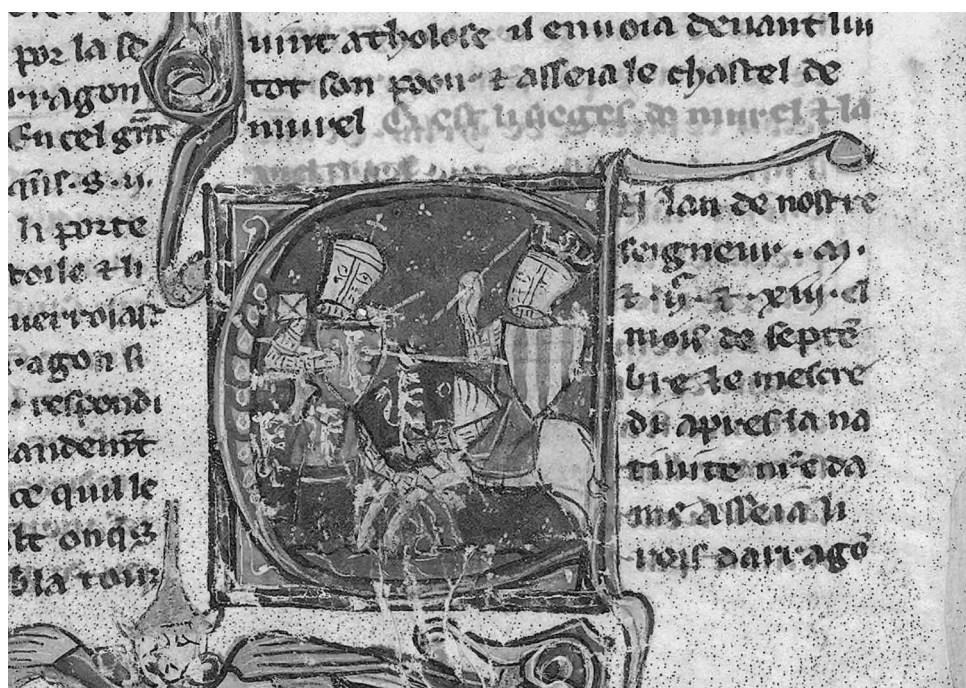 por la se
rragon
En cel gnt
qis · g · ij ·
li porte
toile ⁊ li
uerroiast
ragon si
respondi
andemt
ce quil le
lt onqs
bla tour
uint a tholose il enuoia deuant lui
tot son pooir ⁊ asseia le chastel de
murel Ci est li sieges de murel ⁊ la
lan de nostre
seigneur · m ·
⁊ · ijc · ⁊ · xiii · el
mois de septe
bre ⁊ le mescre
di apres la na
tiuite nre da
me asseia li
rois darrago